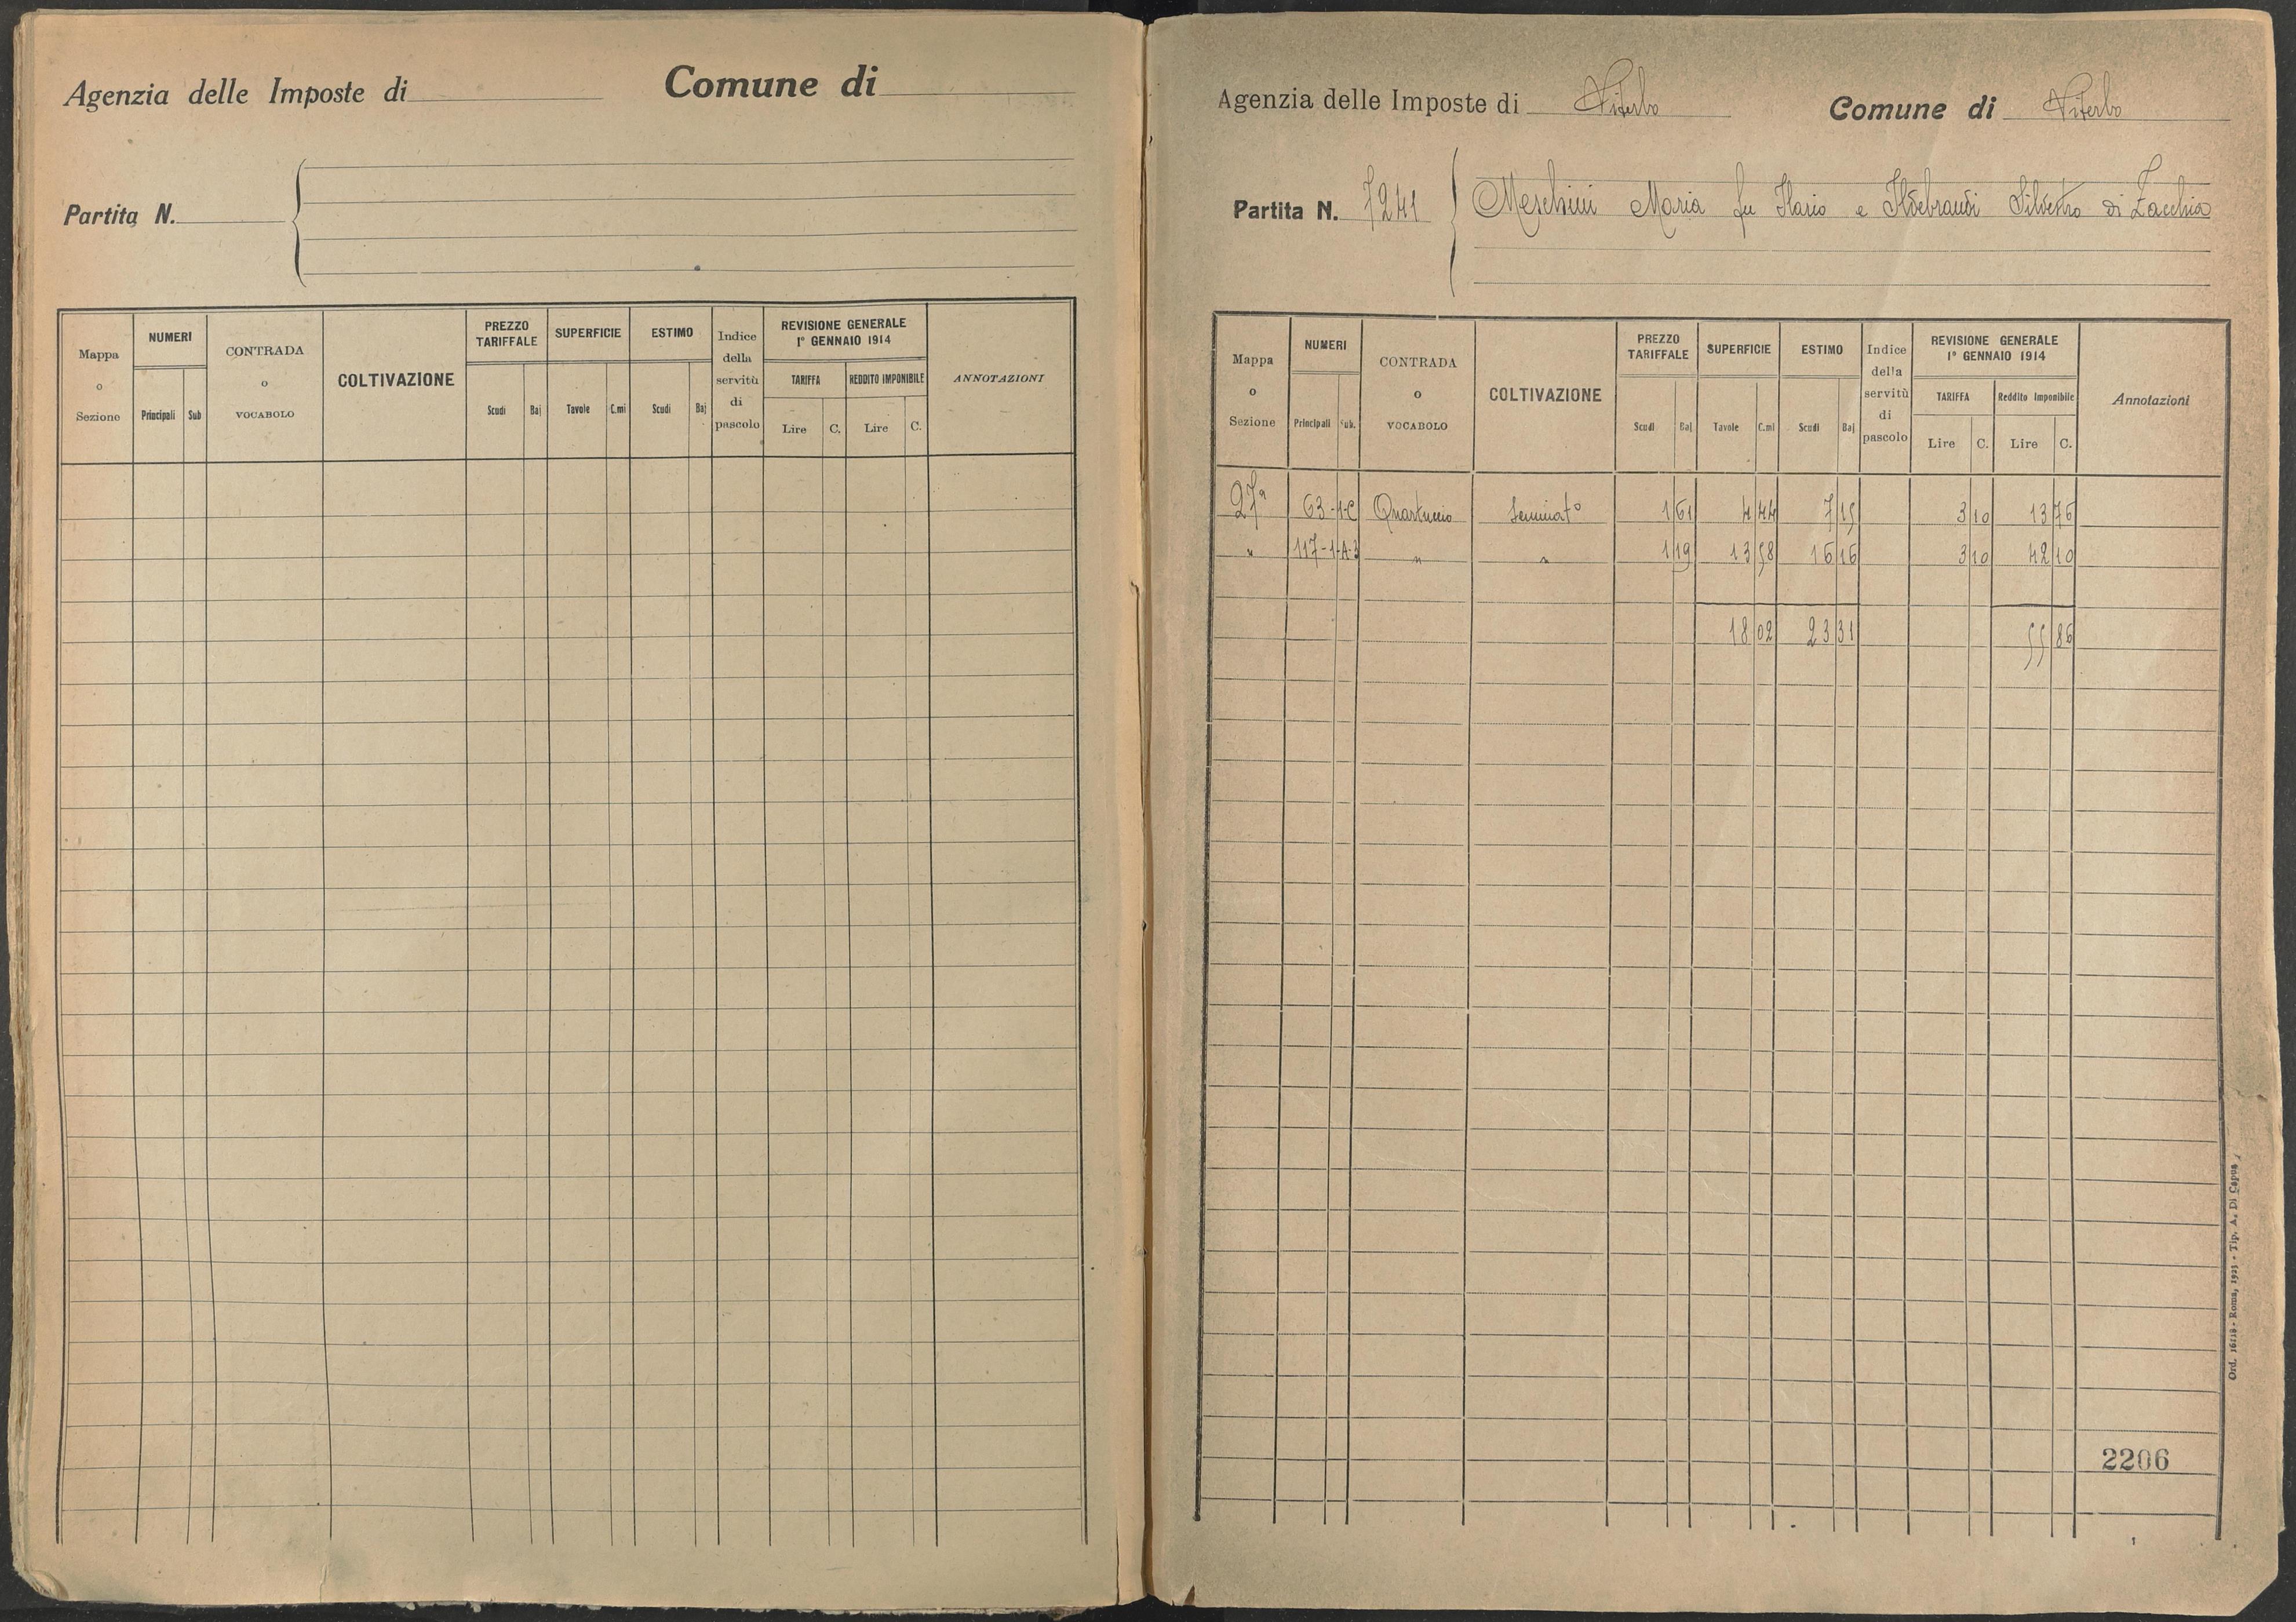 Agenzia delle Imposte di Comune di
Partita N.
Mappa o Sezione NUMERI Principali Sub CONTRADA o VOCABOLO COLTIVAZIONE PREZZO TARIFFALE Scudi Baj SUPERFICIE Tavole C.mi ESTIMO Scudi Baj Indice della servitù di pascolo REVISIONE GENERALE 1° GENNAIO 1914 TARIFFA Lire C. REDDITO IMPONIBILE Lire C. ANNOTAZIONI
Agenzia delle Imposte di Viterbo Comune di Viterbo
Partita N. 7241 Meschini Maria fu Ilario e Ildebrandi Silvestro di Zacchia
Mappa o Sezione NUMERI Principali Sub. CONTRADA o VOCABOLO COLTIVAZIONE PREZZO TARIFFALE Scudi Baj SUPERFICIE Tavole C.mi ESTIMO Scudi Baj Indice della servitù di pascolo REVISIONE GENERALE 1° GENNAIO 1914 TARIFFA Lire C. Reddito Imponibile Lire C. Annotazioni
27a 63-1-C Quartuccio Seminato 1 61 4 44 7 15 3 10 13 76
" 117-1-A-3 " " 1 19 13 58 16 16 3 10 42 10
18 02 23 31 55 86
2206
Ord. 16118 - Roma, 1923 - Tip. A. Di Capua